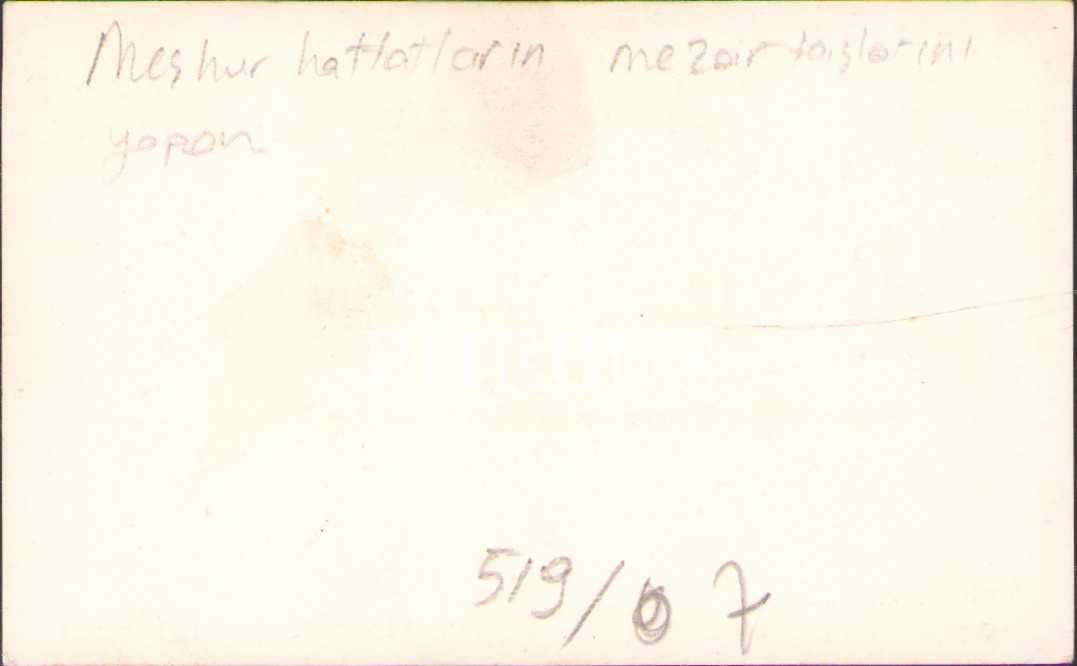 Meşhur hattatların mezar taşlarını
yapan
PHEBUS
519/6 7